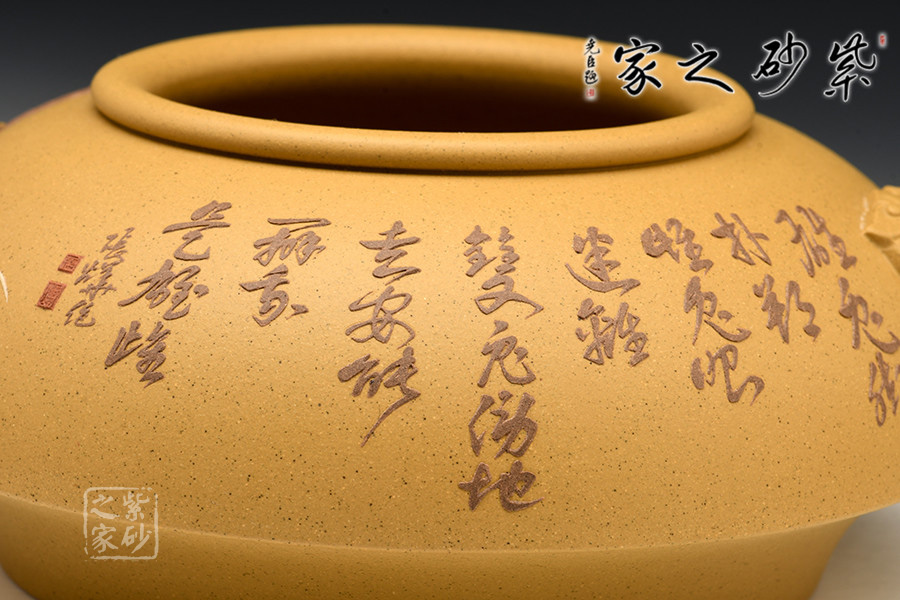 紫砂之家
雄兔脚
扑朔
雌兔眼
迷離
雙兔傍地
走安能
辨我
是雄雌
紫砂
之家